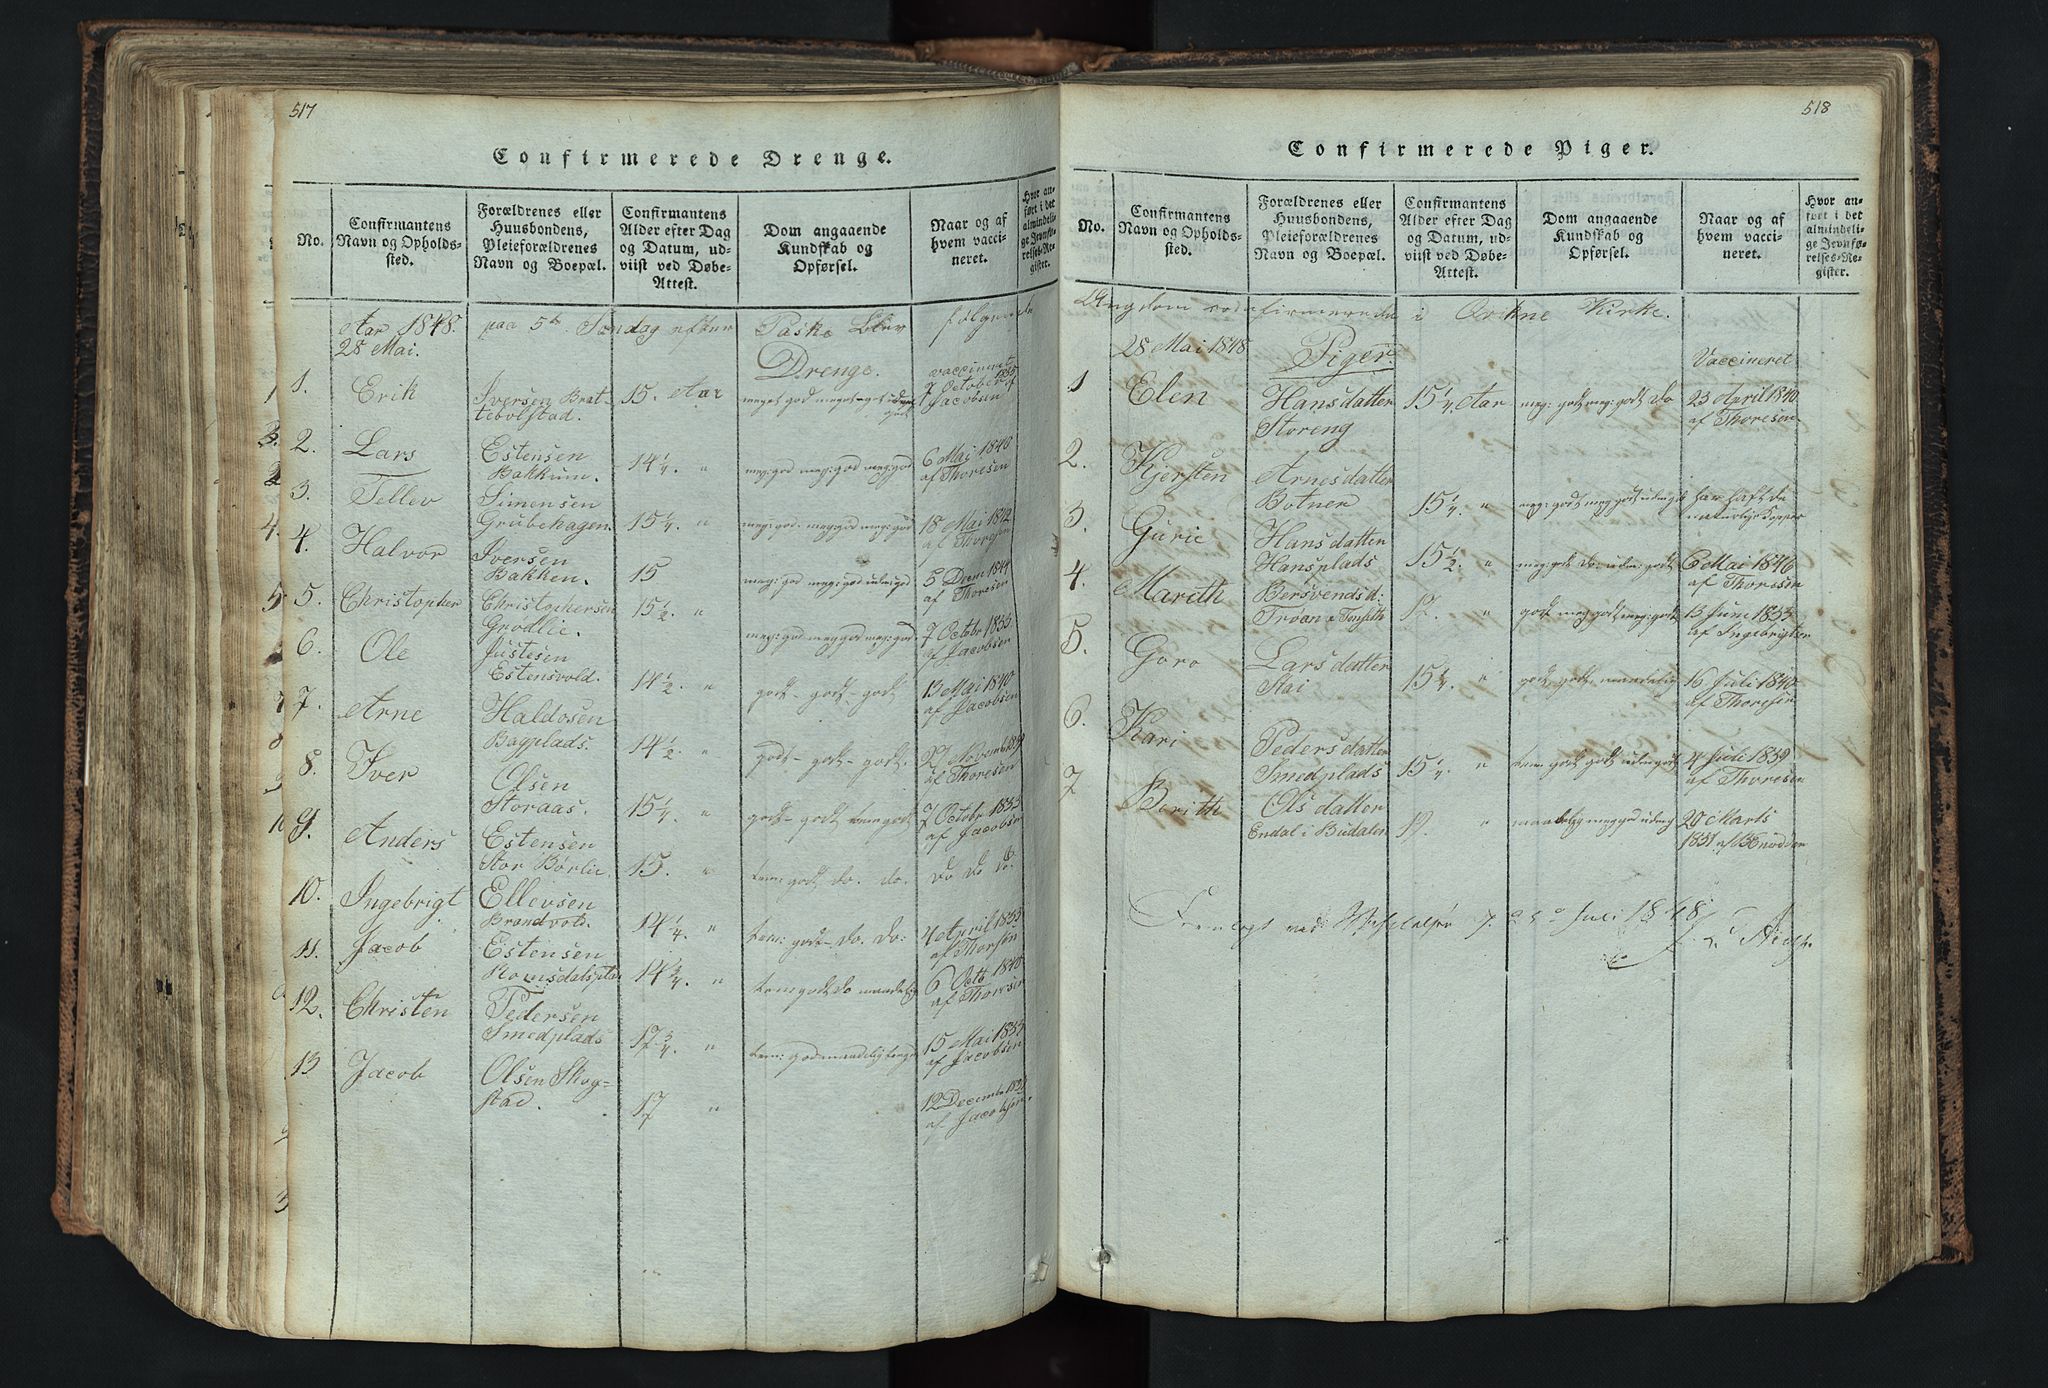 517
Confirmerede Drenge.
No.
Confirmantens Navn og Opholds-sted.
Forældrenes eller Huusbondens, Pleieforældrenes Navn og Boepæl.
Confirmantens Alder efter Dag og Datum, ud-viist ved Døbe-Attest.
Dom angaaende Kundskab og Opførsel.
Naar og af hvem vacci-neret.
Hvor an-ført i det almindeli-ge Jevnfø-relses-Re-gister.
Aar 1848. paa 5te Søndag efter Paske blev følgende
28 Mai. Drenge. vaccineret
1. Erik Iversen Brat- 15. Aar meget god meget god 7 October 1835 af
tebolstad. Jacobsen
2. Lars Estensen 14 1/4. " meg: god meg: god meg: god 6 Mai 1840
Bakkum. af Thoresen
3. Tellev Simensen
Grubehagen. 15 1/4. " meg: god. meg: god meg: god 18 Mai 1842
af Thoresen
4. Halvor Iversen
Bakken. 15 meg: god meg: god udm: god 5 Decm 1844
af Thoresen
5. Christopher Christophersen 15 1/2. "
Grodlie. meg: god meg god meg: god 7 Octobr 1833
af Jacobsen
6. Ole Justesen
Estensvold. 14 1/2. " godt - godt - godt 13 Mai 1840
af Jacobsen
7. Arne Haldosen
Bagplads. 14 1/2 " godt - godt - godt. 22 Novemb
af Thoresen
8. Iver Olsen
Storaas. 15 1/4. " godt - godt 7 Octobr 1833
af Jacobsen
9. Anders Estensen
Stor Børlie. 15. " tem: godt do. do. Do Do Do.
10. Ingebrigt Ellevsen
Brandvold. 14 1/4. " tem: godt - do. do: 4 April 1835
af Thorsen
11. Jacob Estensen
Romsdalsplds 14 3/4. " tem godt do maadelig 6 Octb 1840
af Thoresen
12. Christen Pedersen
Smedplads 17 3/4. " 15 Mai 1833
af Jacobsen
13 Jacob Olsen Skog-
stad. 17 " 12 Decembr
af Jacobsen.
518
Confirmerede Piger.
No.
Confirmantens Navn og Opholds-sted.
Forældrenes eller Huusbondens, Pleieforældrenes Navn og Boepæl.
Confirmantens Alder efter Dag og Datum, ud-viist ved Døbe-Attest.
Dom angaaende Kundskab og Opførsel.
Naar og af hvem vacci-neret.
Hvor an-ført i det almindeli-ge Jevnfø-relses-Re-gister.
Ungdom confirmerede i Kirke.
28 Mai 1848 Piger Vaccineret
1 Elen Hansdatter 15 1/4 Aar meg: godt meg: godt do 23 April 1840
Storeng af Thoresen
2. Kjersten Arnesdatter
Botner 15 1/4. " meg: godt meg godt udm: godt har haft de
naturlige Kopper
3. Gurie Hansdatter
Hansplads 15 1/2. " meg: godt do: udm: godt 6 Mai 1846
af Thoresen
4. Marith Bersvends d:
Trøan i Tønseth 17. " godt meg godt meg: godt 13 Juni 1833
af Ingebrigtsen
5. Goro Larsdatter
Stai 15 1/4. " godt godt maadelig 16 Juli 1840
af Thoresen
6. Kari Pedersdatter
Smedplads 15 1/4. " tem: godt godt udm: godt 4 Juli 1839
af Thoresen
7 Berith Olsdatter
Endal i Budalen 19. " maadelig meg god udm: g 20 Marts
1831 af
Juli 1848